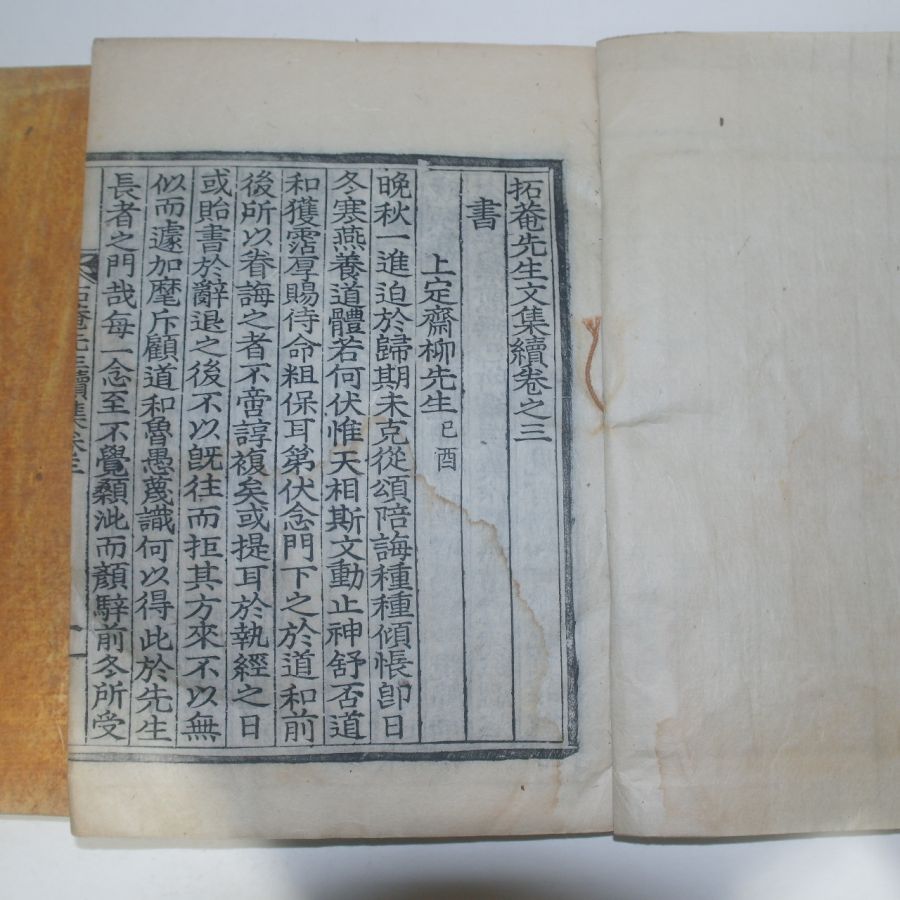 拓菴先生文集續卷之三
書
上定齋柳先生 己酉
晩秋一進迫於歸期未克從頌陪誨種種傾悵卽日
冬寒燕養道體若何伏惟天相斯文動止神舒否道
和獲霑厚賜侍命粗保耳第伏念門下之於道和前
後所以眷誨之者不啻諄複矣或提耳於執經之日
或貽書於辭退之後不以旣往而拒其方來不以無
似而遽加麾斥顧道和魯愚蔑識何以得此於先生
長者之門哉每一念至不覺顙泚而顔騂前冬所受